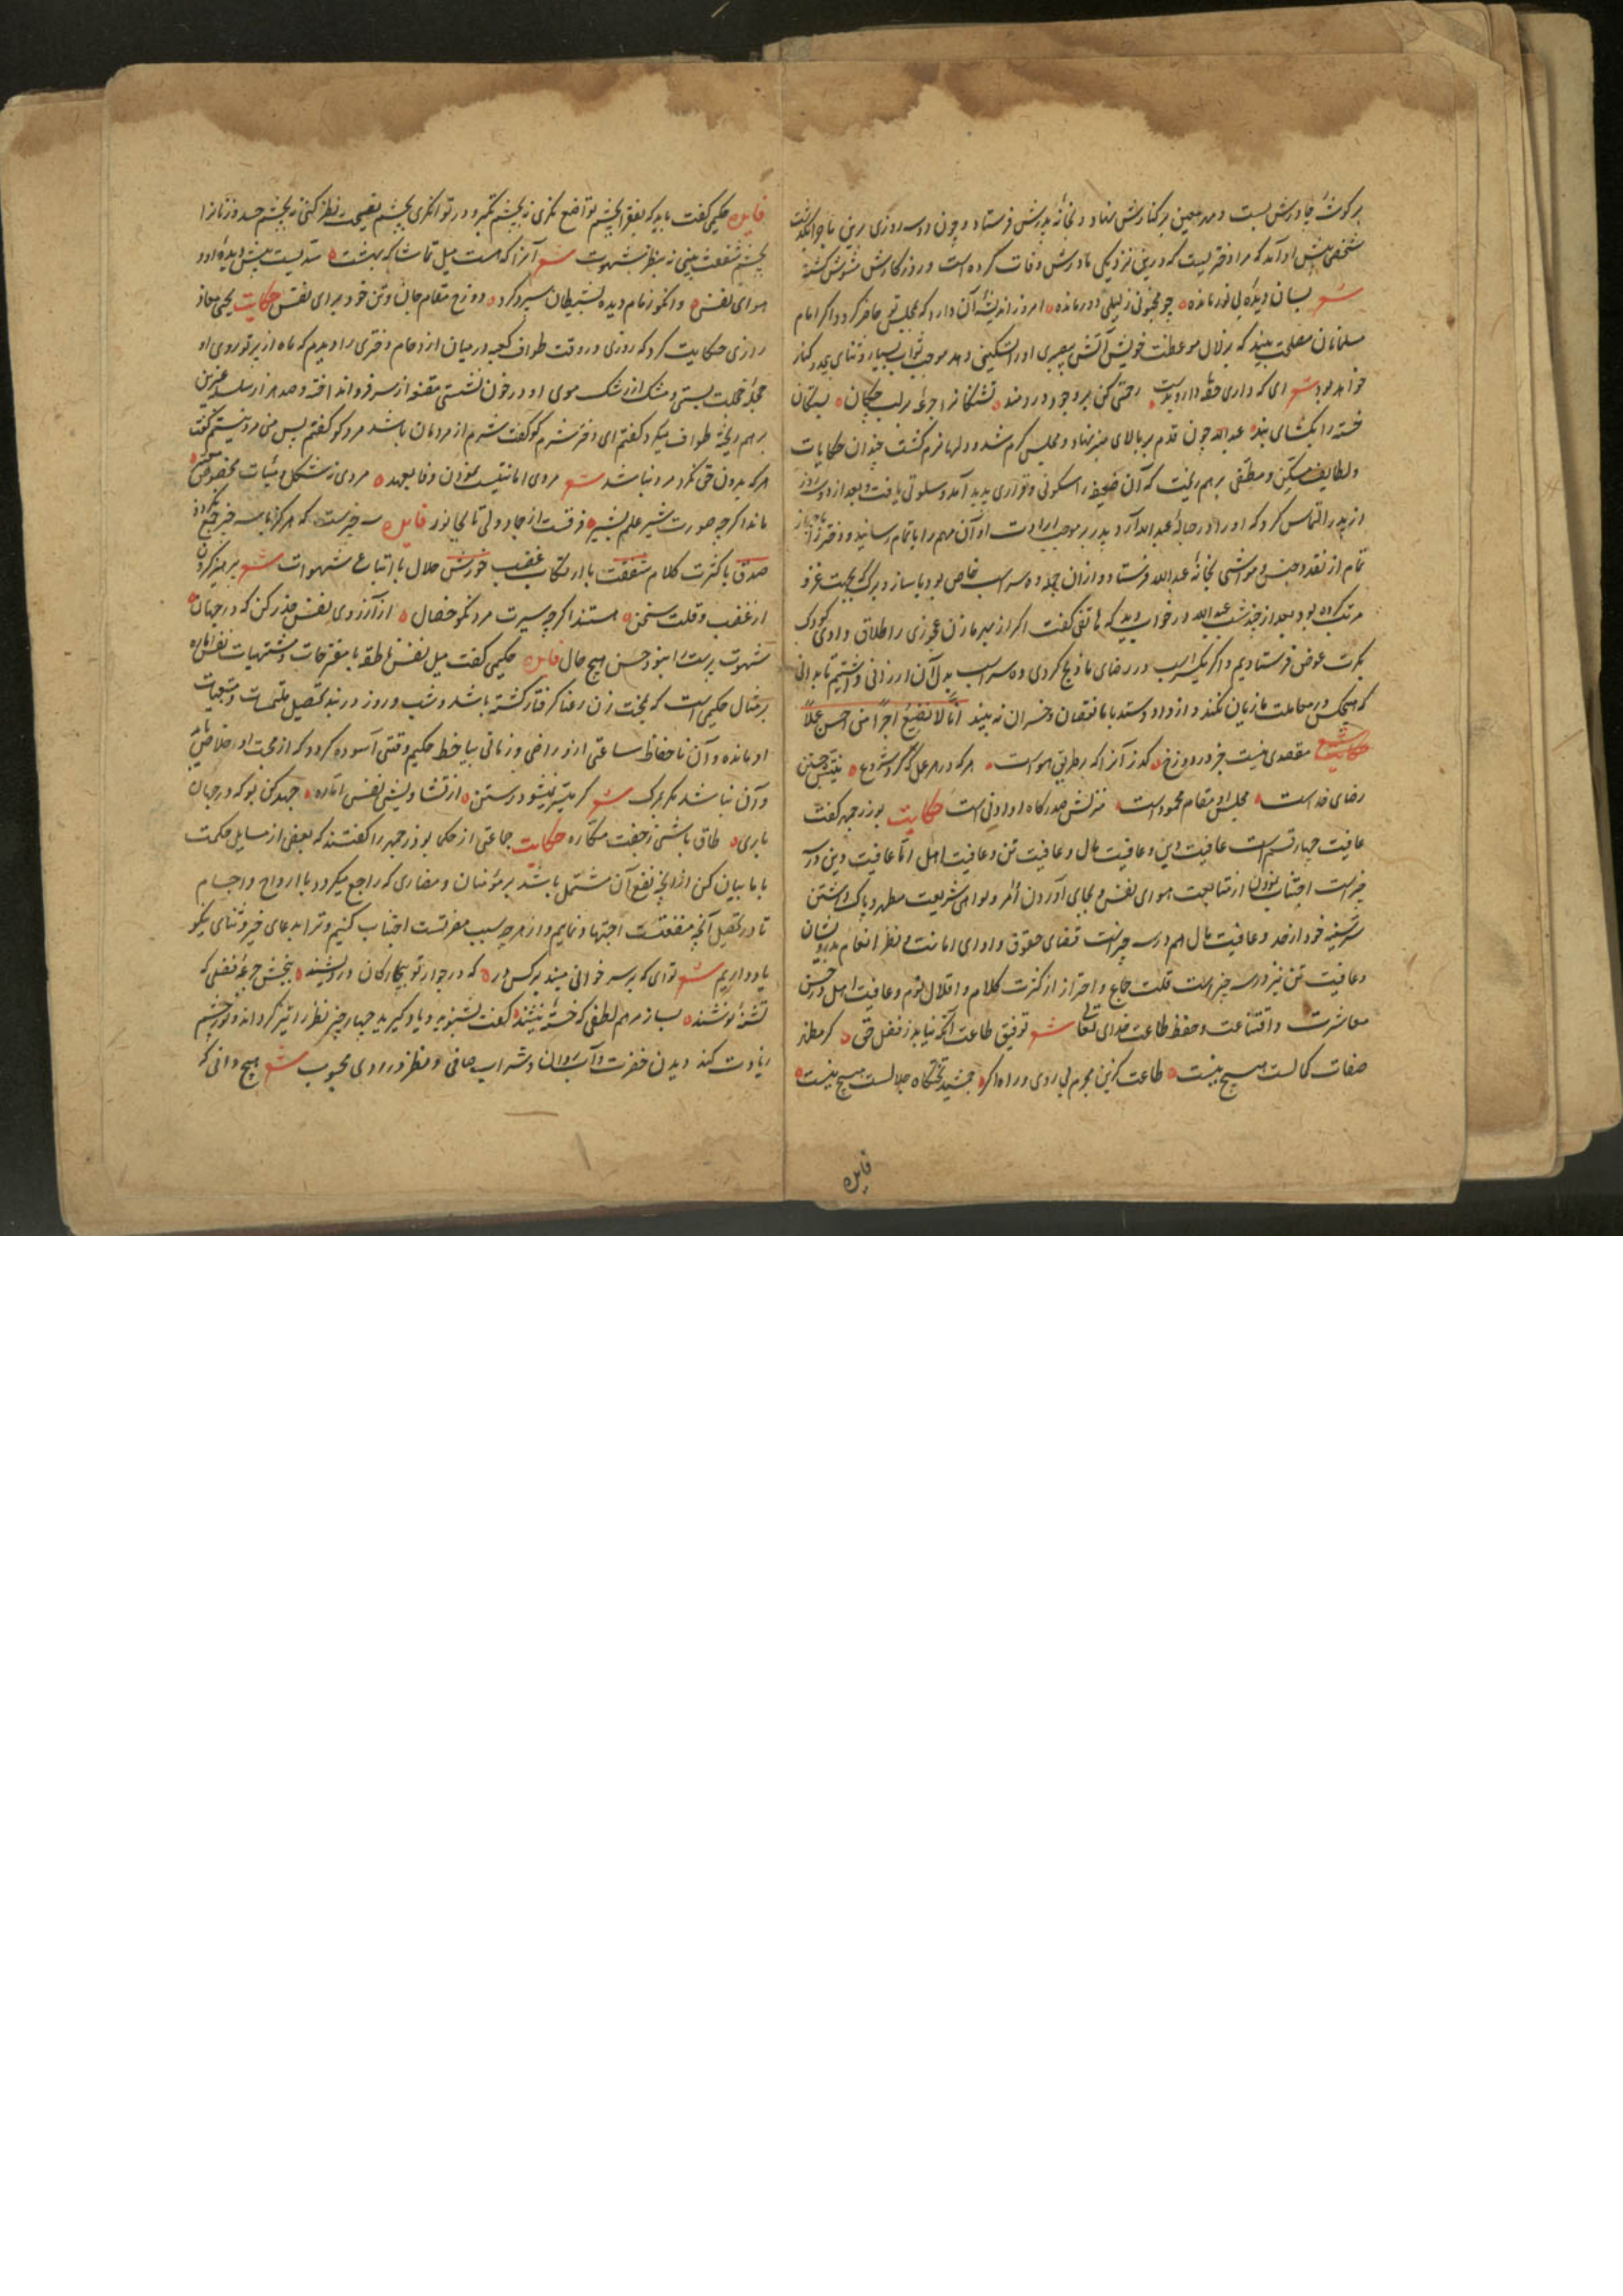 بر گوشهٔ چادرش بست و مهد در کنارش نهاد و بخانهٔ پدرش فرستاد و چون دو سه روزی برین ماجرا بگذشت
شخصی پیش او آمد که مرا دختریست که درین نزدیکی مادرش وفات کرده است و روزگارش مشوش گشته
شعر بسان دیدهٔ بی نور مانده چو مجنونی ز لیلی دور مانده امروز اندیشهٔ آن دارد که بمجلس تو حاضر گردد اگر امام
مسلمانان مصلحت بیند که بزلال موعظت خویش آتش بیصبری او را تسکینی دهد موجب ثواب بسیار و ثنای بی
خواهد بود شعر ای که داری رحمتی کن بر وجود دردمند تشنگانرا جرعهٔ بر لب چکان بستگان
خسته را بگشای بند عبدالله چون قدم بر بالای منبر نهاد و مجلس گرم شد و دلها نرم گشت چندان حکایات
و لطایف برهم ریخت که آن ضعیفه را سکونی و قراری پدید آمد و سلوتی یافت و بعد از دو سه روز
از پدر التماس کرد که او را در حبالهٔ عبدالله آرد پدر بر موجب ارادت او آن مهم را باتمام رسانید و دختر را
تمام از نقد و جنس و مواشی بخانهٔ عبدالله فرستاد و از آن جمله ده سر اسب خاص بود با ساز و برگ که بجهت غزو
مرتب کرده بود بعد از چند شب عبدالله در خواب دید که هاتفی گفت اگر از بهر ما زن عجوزی را طلاق دادی
بکرت عوض فرستادیم و اگر یک اسب در رضای ما ذبح کردی ده سر اسب بدل آن ارزانی داشتیم تا بدانی
که هیچکس در معاملت ما زیان نکند و از داد و ستد با ما نقصان و خسران نه بیند انا لا نضیع اجر من احسن عملا
شعر مقصدی نیست جز در دوزخ گذر آنرا که بر طریق هواست هر که در هر عمل که کرد شروع نیتش جستن
رضای خداست مجلس او مقام محمود است منزلش صدرگاه او ادنی است حکایت بوزرجمهر گفت
عافیت چهار قسم است عافیت دین و عافیت مال و عافیت تن و عافیت اهل اما عافیت دین در سه
چیز است اجتناب نمودن از متابعت هوای نفس و بجای آوردن امر و نواهی شریعت مطهر و پاک داشتن
سینه خود از حسد و عافیت مال هم در سه چیز است قضای حقوق و ادای امانت و نظر انعام بدرویشان
و عافیت تن نیز در سه چیز است قلت جماع و احتراز از کثرت کلام و اقلال نوم و عافیت اهل در حسن
معاشرت و اقناعت و حفظ طاعت خدای تعالی شعر توفیق طاعت ار نیاید ز فضل حق گر مظهر
صفات کمالست هیچ نیست طاعت گزین مجرم بی روی و راه اگر جمشید تختگاه جلالست هیچ نیست
فایده
فایده حکیمی گفت باید که بفقرا بچشم تواضع نگری نه بچشم تکبر و در توانگری بچشم نصیحت نظر کنی نه بچشم حسد و زنانرا
بچشم شفقت بینی نه بنظر شهوت شعر آنرا که هست میل تماشاگه بهشت سدیست پیش دیدهٔ او
هوای نفس وانکو زمام دیده بشیطان سپرد کرد دوزخ مقام جان و تن خود برای نفس حکایت یحیی معاذ
رازی حکایت کرد که روزی در وقت طواف کعبه در میان ازدحام دختری را دیدم که ماه از پرتو روی او
خجلت بستی و مشک از رشک موی او در خون نشستی مقنعه از سر فرو انداخته و صد هزار سلسلهٔ عنبرین
برهم ریخته طواف میکرد گفتم ای دختر شرم کو گفت شرم از مردمان باشد مرد کو گفتم پس من مرد نیستم گفت
هر که بدون حق نگرد مرد نباشد شعر مردی امانتیست نمودن وفا بعهد مردی نه شکل و هیئات مخصوص
ماند اگرچه صورت شیر علم بشیر فرقست از جماد ولی تا بجانور فایده سه چیزست که هرگز با سه چیز جمع نگردد
صدق با کثرت کلام شفقت با ارتکاب غضب خورش حلال با اتباع شهوات شعر پرهیز کردن
از غضب و قلت سخن هستند اگرچه سیرت مرد نکو خصال از آرزوی نفس حذر کن که در جهان
شهوت پرست را نبود حسن هیچ حال فایده حکیمی گفت میل نفس ناطقه با مقترحات و مشتهیات نفس اماره
بر مثال حکیمی است که بمحبت زن رعنا گرفتار گشته باشد و شب و روز در بند تحصیل ملتمسات
او مانده و آن ناحفاظ ساعتی ازو راضی و زمانی ساخط حکیم وقتی آسوده گردد که از محبت او خلاصی یابد
و آن نباشد مگر بمرگ شعر گر میسر نمیشود رستن از تشاویش نفس اماره جهد کن بو که در جهان
باری طاق باشی ز جفت مکاره حکایت جماعتی از حکما بوذرجمهر را گفتند که بعضی از مسایل حکمت
با ما بیان کن از آنچه نفع آن مشتمل باشد بر مؤمنان و مضاری که راجع میگردد با ارواح و اجسام
تا در تحصیل آنچه منفعتست اجتهاد نمایم و از هر چه سبب مضرتست اجتناب کنیم و ترا بدعای خیر و ثنای نیکو
یاد داریم شعر تو ای که بر سر خوانی مبند بر کس در که در جوار تو بیچارگان درویشند ببخش جرعهٔ فضلی که
تشنهٔ نوشند بساز مرهم لطفی که خسته نیشند گفت بشنوید و یاد گیرید چهار چیز نظر را تیز گرداند و نور چشم
زیادت کند دیدن خضرت و آب روان و شراب صافی و نظر در روی محبوب شعر هیچ دانی که